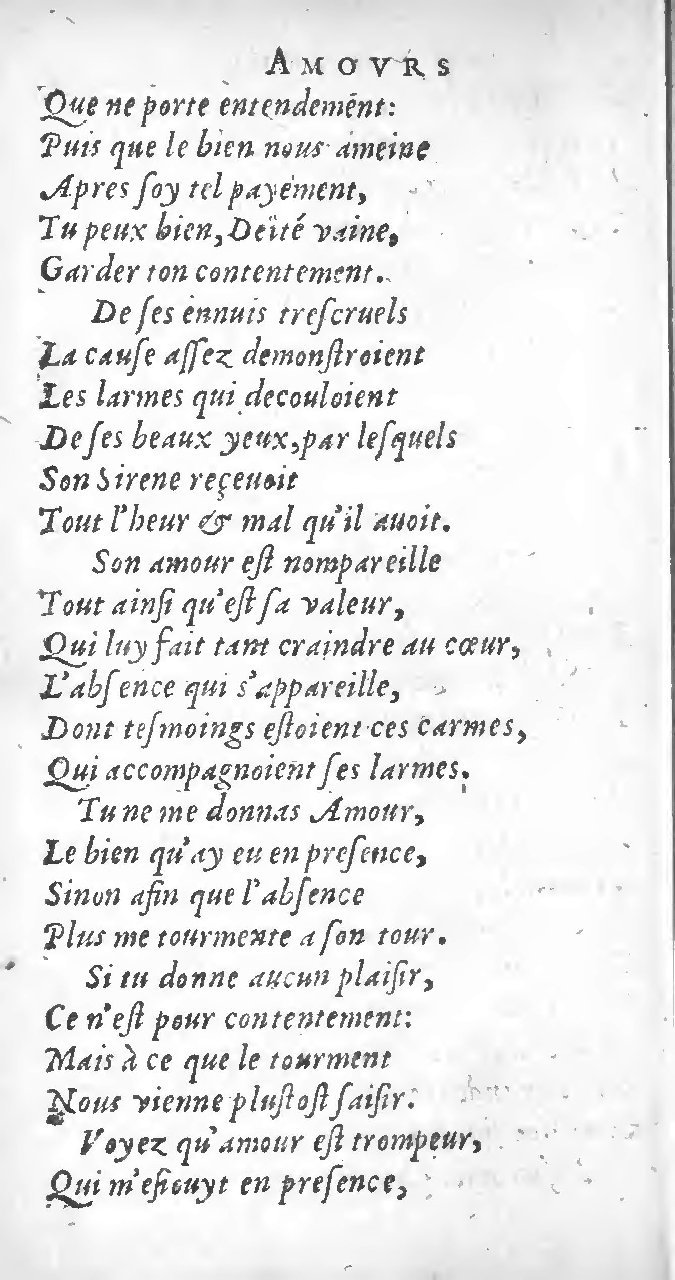 AMOVRS
Que ne porte entendemẽt:
Puis que le bien nous ameine
Apres ſoy tel payement,
Tu peux bien, Deïté vaine,
Garder ton contentement.
De ſes ennuis treſcruels
La cauſe aſſez demonſtroient
Les larmes qui decouloient
De ſes beaux yeux, par leſquels
Son Sirene reçeuoit
Tout l'heur & mal qu'il auoit.
Son amour eſt nompareille
Tout ainſi qu'eſt ſa valeur,
Qui luy fait tant craindre au cœur,
L'abſence qui s'appareille,
Dont teſmoings eſtoient ces carmes,
Qui accompagnoient ſes larmes.
Tu ne me donnas Amour,
Le bien qu'ay eu en preſence,
Sinon afin que l'abſence
Plus me tourmente a ſon tour.
Si tu donne aucun plaiſir,
Ce n'eſt pour contentement:
Mais à ce que le tourment
Nous vienne pluſtoſt ſaiſir.
Voyez qu'amour eſt trompeur,
Qui m'eſiouyt en preſence,